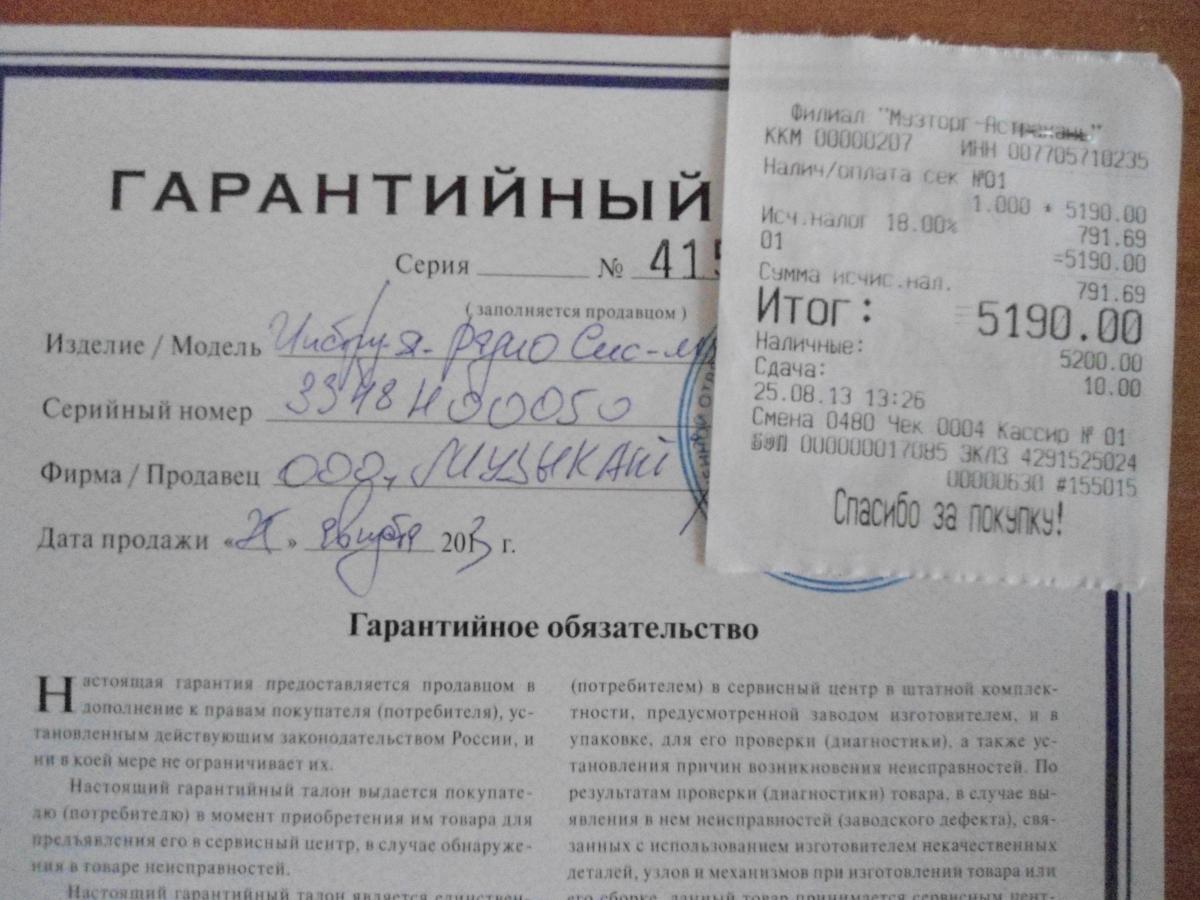 ГАРАНТИЙНЫЙ
Серия № 415
(заполняется продавцом)
Изделие / Модель радио Сис-ма
Серийный номер 3348Н00050
Фирма / Продавец ООО "Музыкант
Дата продажи « » августа 2013 г.
Филиал "Музторг-Астрахань"
ККМ 00000207 ИНН 007705710235
Налич/оплата сек №01
1.000 * 5190.00
Исч.налог 18.00% 791.69
01 =5190.00
Сумма исчис.нал. 791.69
Итог: =5190.00
Наличные: 5200.00
Сдача: 10.00
25.08.13 13:26
Смена 0480 Чек 0004 Кассир № 01
000000017085 ЭКЛЗ 4291525024
00000630 #155015
Спасибо за покупку!
Гарантийное обязательство
Настоящая гарантия предоставляется продавцом в
дополнение к правам покупателя (потребителя), ус-
тановленным действующим законодательством России, и
ни в коей мере не ограничивает их.
Настоящий гарантийный талон выдается покупате-
лю (потребителю) в момент приобретения им товара для
предъявления его в сервисный центр, в случае обнаруже-
ния в товаре неисправностей.
Настоящий гарантийный талон является единствен-
(потребителем) в сервисный центр в штатной комплек-
тности, предусмотренной заводом изготовителем, и в
упаковке, для его проверки (диагностики), а также ус-
тановления причин возникновения неисправностей. По
результатам проверки (диагностики) товара, в случае вы-
явления в нем неисправностей (заводского дефекта), свя-
занных с использованием изготовителем некачественных
деталей, узлов и механизмов при изготовлении товара или
его сборке, данный товар принимается сервисным цент-